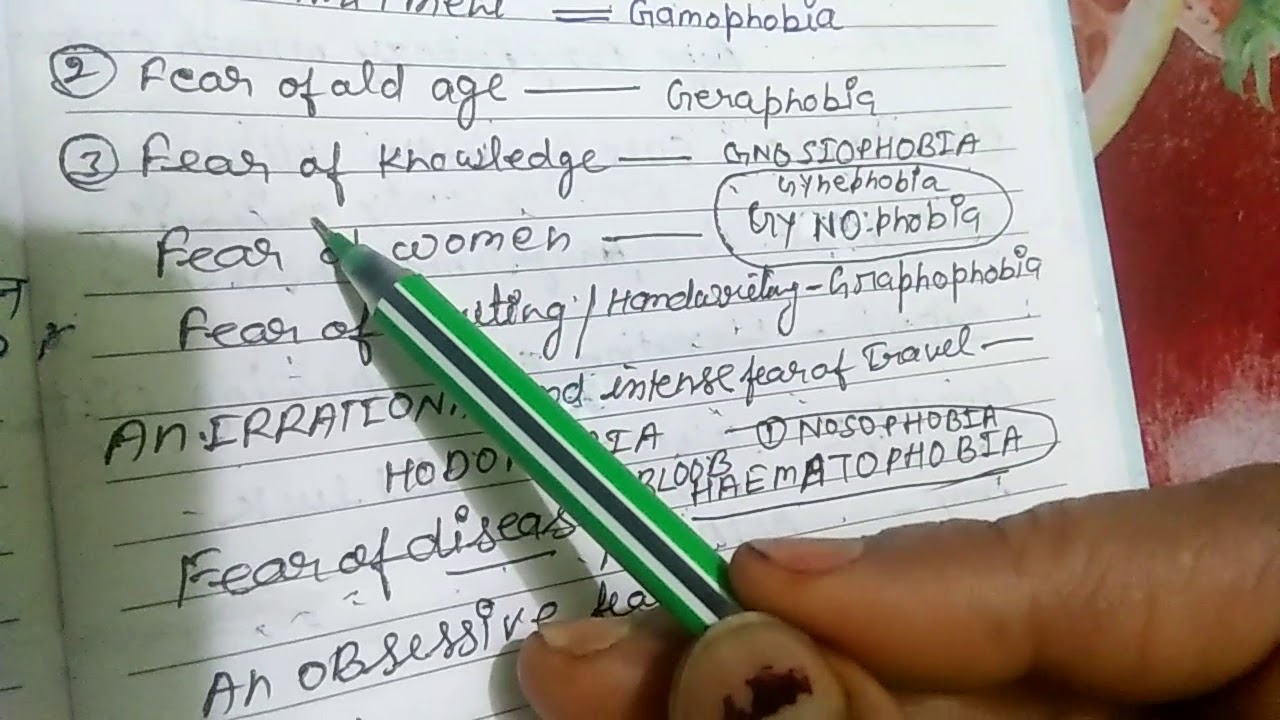 = Gamophobia
② Fear of ald age — Geraphobia
③ Fear of Knowledge — GNOSIOPHOBIA
Gynephobia
Fear of women — GYNO:phobia
Fear of /Handwriting-Graphophobia
An IRRATION intense fear of Travel —
HODO IA — ① NOSOPHOBIA
BLOOB HAEMATOPHOBIA
Fear of diseas
An OBsessive fea